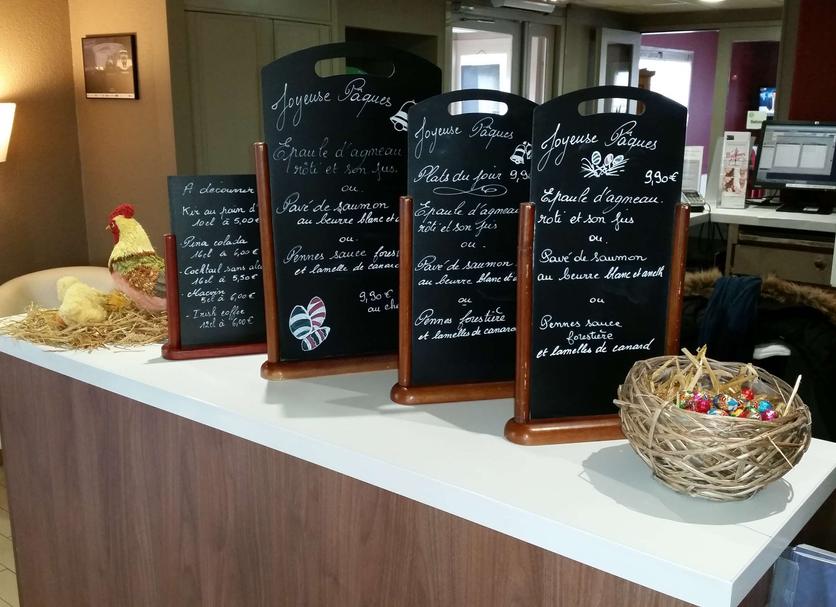 A découvrir
Kir au pain d'
10cl à 5,00€
Pina colada
16cl à 6,00€
Cocktail sans alc
16cl à 5,50€
5cl à 6,00€
Irish coffee
12cl à 6,00€
Joyeuse Pâques
Epaule d'agneau
rôti et son jus.
ou.
Pavé de saumon
au beurre blanc et a
ou.
Pennes sauce fores
et lamelle de canard
9,90€
au ch
Joyeuse Pâques
Plats du jour 9,9
Epaule d'agneau
rôti et son jus
ou.
Pavé de saumon
au beurre blanc et a
ou
Pennes forestière
et lamelles de canard
Joyeuse Pâques
9,90€
Epaule d'agneau.
rôti et son jus
ou.
Pavé de saumon
au beurre blanc et aneth
ou
Pennes sauce
forestière
et lamelles de canard